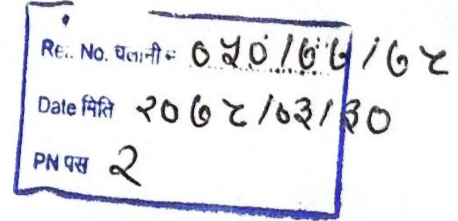 Ref. No. चलानी नं ०५०/७७/७८
Date मिति २०७८/०३/३०
PN पस २